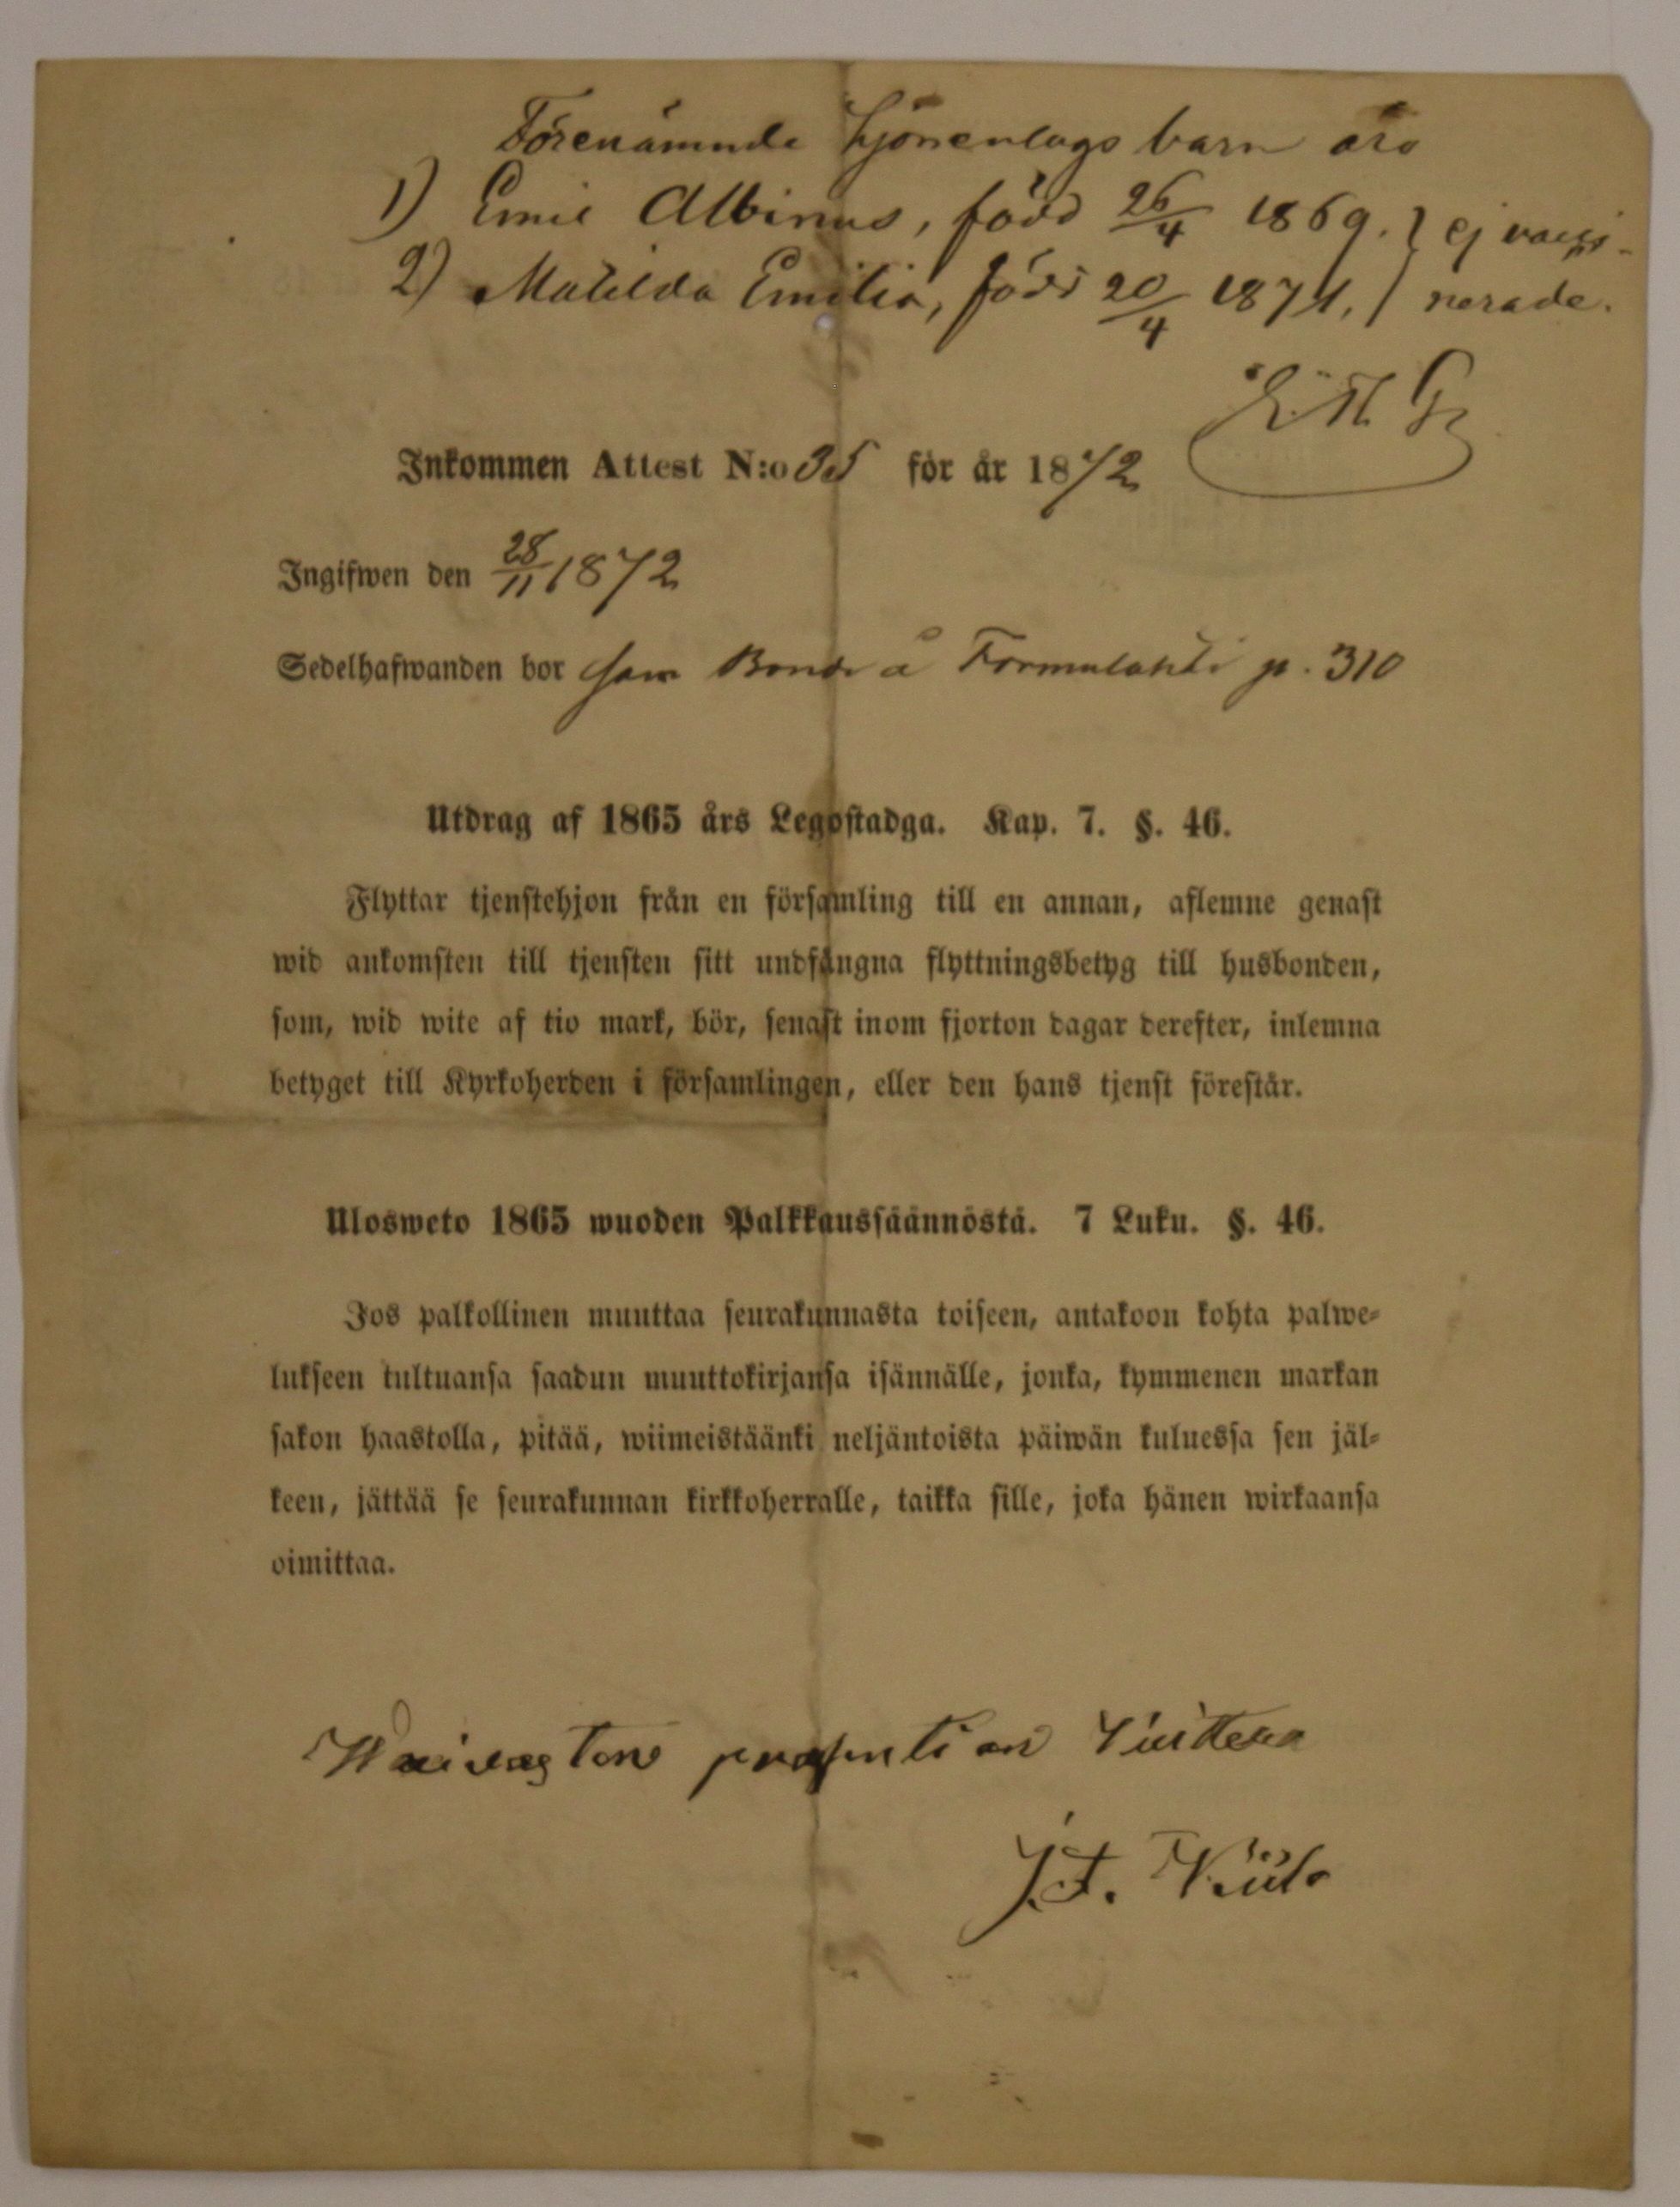 Förenämnde hjonelags barn äro
1) Emil Albinus, född 26/4 1869. } ej vacci-
2) Matilda Emilia, född 20/4 1871. } nerade.
Inkommen Attest N:o 35 för år 1872
Ingifwen den 28/11 1872
Sedelhafwanden bor som Bonde å Formulahti p. 310
Utdrag af 1865 års Legostadga. Kap. 7. §. 46.
Flyttar tjenstehjon från en församling till en annan, aflemne genast
wid ankomsten till tjensten sitt undfångna flyttningsbetyg till husbonden,
som, wid wite af tio mark, bör, senast inom fjorton dagar derefter, inlemna
betyget till Kyrkoherden i församlingen, eller den hans tjenst förestår.
Ulosweto 1865 wuoden Palkkaussäännöstä. 7 Luku. §. 46.
Jos palkollinen muuttaa seurakunnasta toiseen, antakoon kohta palwe-
lukseen tultuansa saadun muuttokirjansa isännälle, jonka, kymmenen markan
sakon haastolla, pitää, wiimeistäänki neljäntoista päiwän kuluessa sen jäl-
keen, jättää se seurakunnan kirkkoherralle, taikka sille, joka hänen wirkaansa
oimittaa.